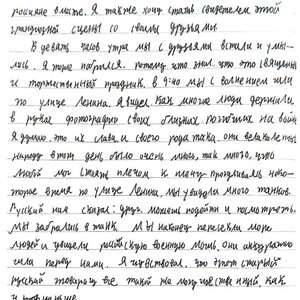 россияне вместе. Я также хочу стать свидетелем этой
грандиозной сцены со своими друзьями.
В девять часов утра мы с друзьями встали и умы-
лись. Я тоже побрился, потому что знал, что это священный
и торжественный праздник. В 9:40 мы с волнением шли
по улице Ленина. Я видел, как многие люди держали
в руках фотографии своих близких, погибших на войне.
Я думаю, это их слава и своего рода такая, они великолепны.
народу в этот день было очень много, так много, что
любой мог стоять плечом к плечу. Прогуливаясь неко-
торое время по улице Ленина, мы увидели много танков.
Русский нам сказал: друг, можешь подойти и посмотреть,
мы забрались в танк. Мы наконец пересекли море
людей и увидели российскую военную мощь, они аккуратно
шли перед нами. Я чувствовал, что этот старый
русский товарищ все такой же могущественный, как
и раньше